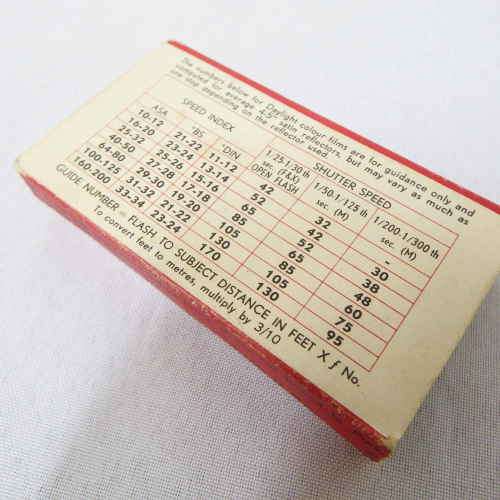 The numbers below for Daylight colour films are for guidance only and
computed for average 4-5" satin reflectors, but may vary as much as
one stop depending on the reflector used.
SPEED INDEX SHUTTER SPEED
ASA °BS °DIN 1/25.1/30th sec. (F&X) OPEN FLASH 1/50.1/125th sec. (M) 1/200.1/300th sec. (M)
10-12 21-22 11-12 42 32 -
16-20 23-24 13-14 52 42 30
25-32 25-26 15-16 65 52 38
40-50 27-28 17-18 85 65 48
64-80 29-30 19.20 105 85 60
100.125 31-32 21-22 130 105 75
160.200 33-34 23-24 170 130 95
GUIDE NUMBER = FLASH TO SUBJECT DISTANCE IN FEET X f No.
To convert feet to metres, multiply by 3/10